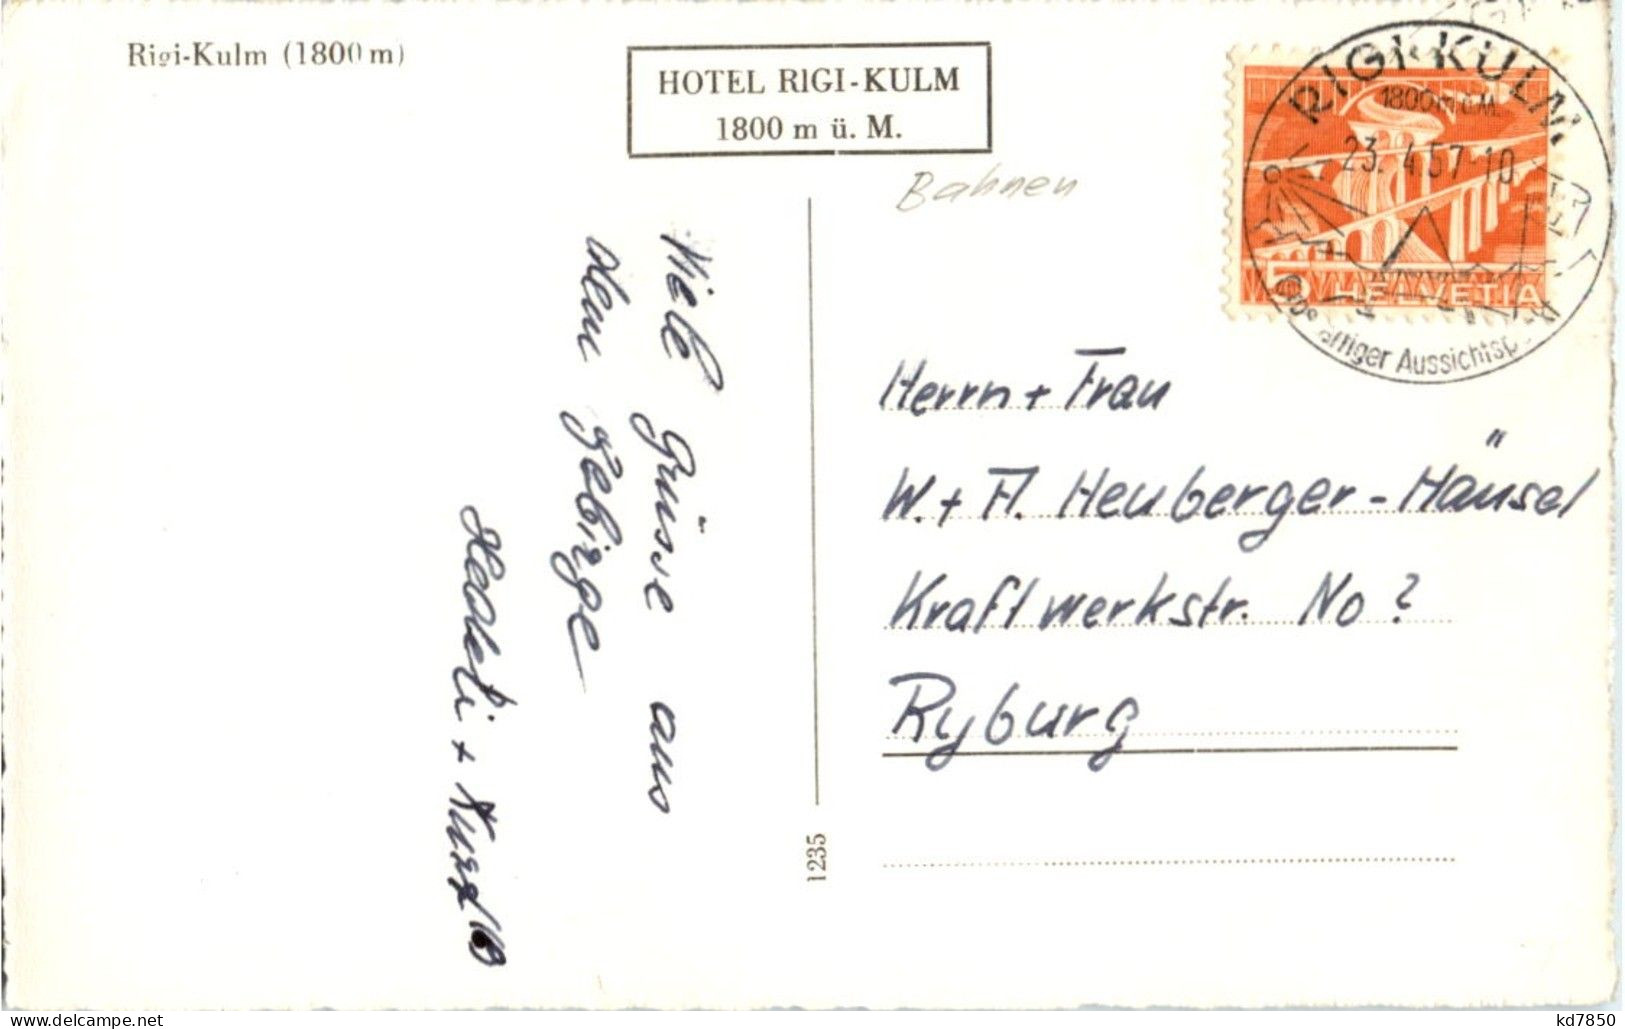 Rigi-Kulm (1800 m)
HOTEL RIGI-KULM
1800 m ü. M.
Bahnen
RIGI-KULM
1800 m ü.M.
23. 4.57-10
Aussichtsp
5 HELVETIA
Viele Grüsse aus
dem Gebirge
Hedeli + Kurt
Herrn + Frau
W. + A. Heuberger-Häusel
Kraftwerkstr. No?
Ryburg
1235
Delcampe.net
kd7850